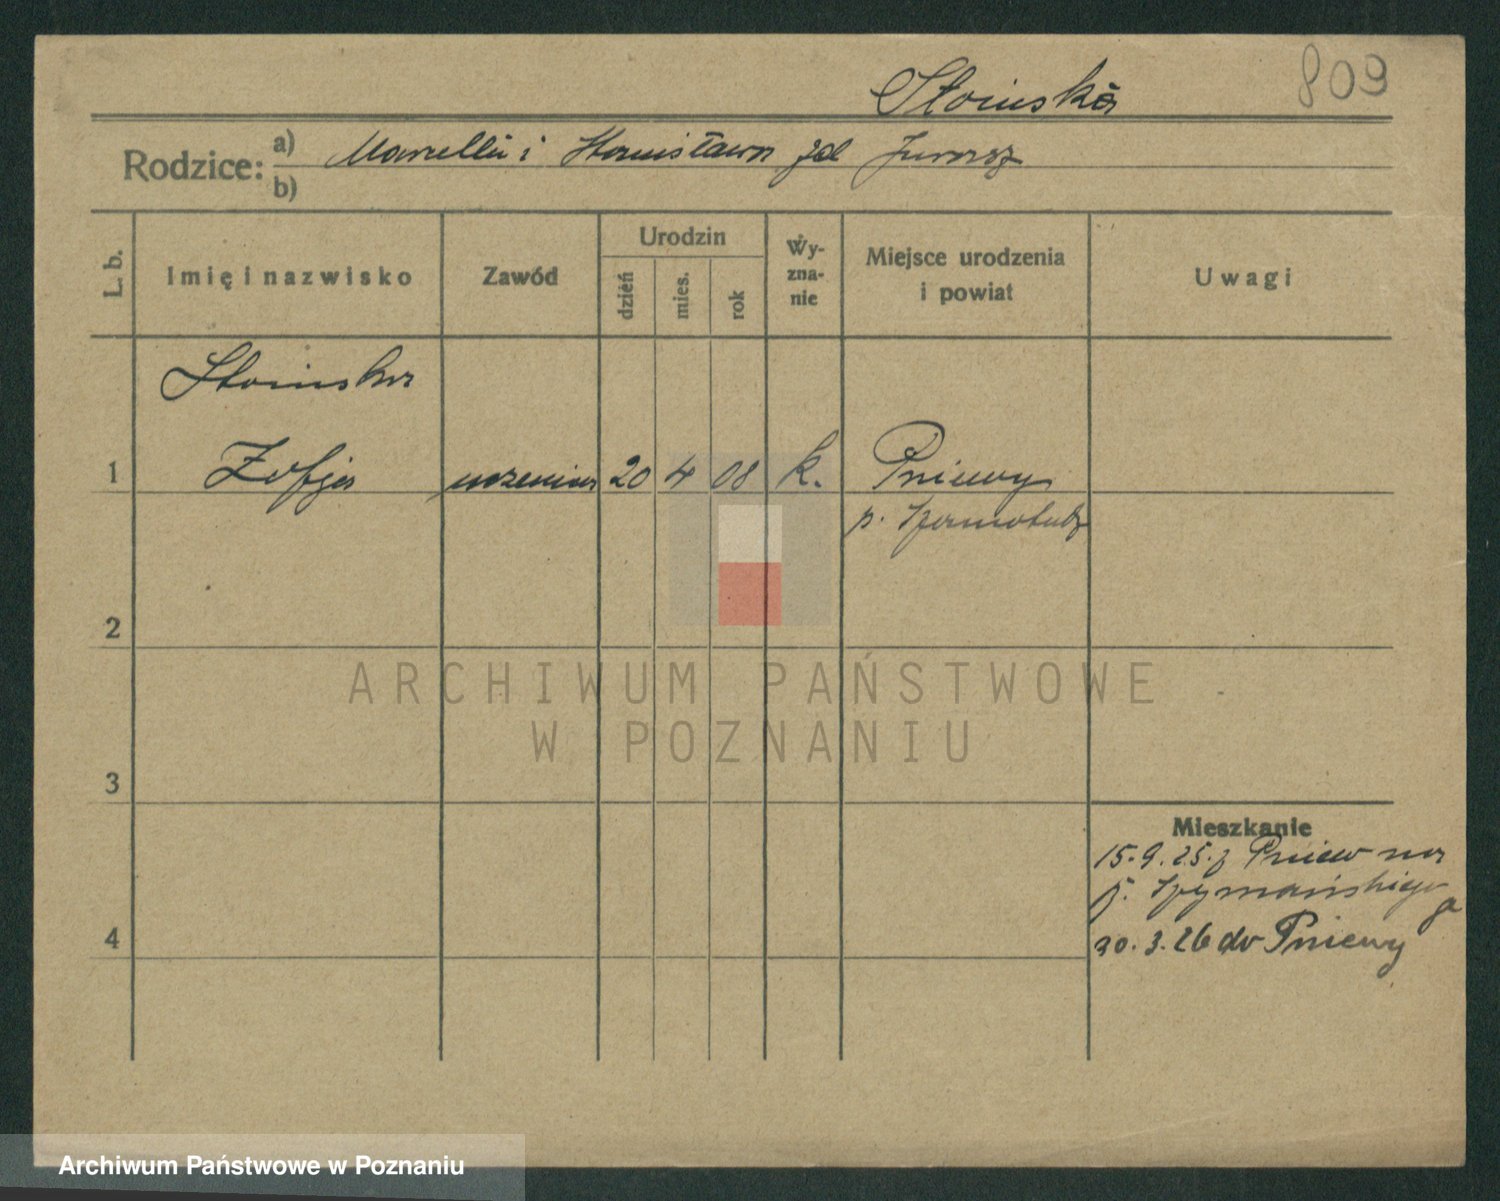 809
Słoińska
Rodzice: a) Marcelli i Stanisława zd Jurasz
b)
L. b.
Imię i nazwisko
Zawód
Urodzin
dzień
mies.
rok
Wy-
zna-
nie
Miejsce urodzenia
i powiat
Uwagi
Słoińska
1 Zofja uczenica 20 4 08 k. Pniewy
p. Szamotuły
2
3
4
Mieszkanie
15.9.25. z Pniew na
Szymańskiego
30.3.26 do Pniewy
ARCHIWUM PAŃSTWOWE
W POZNANIU
Archiwum Państwowe w Poznaniu